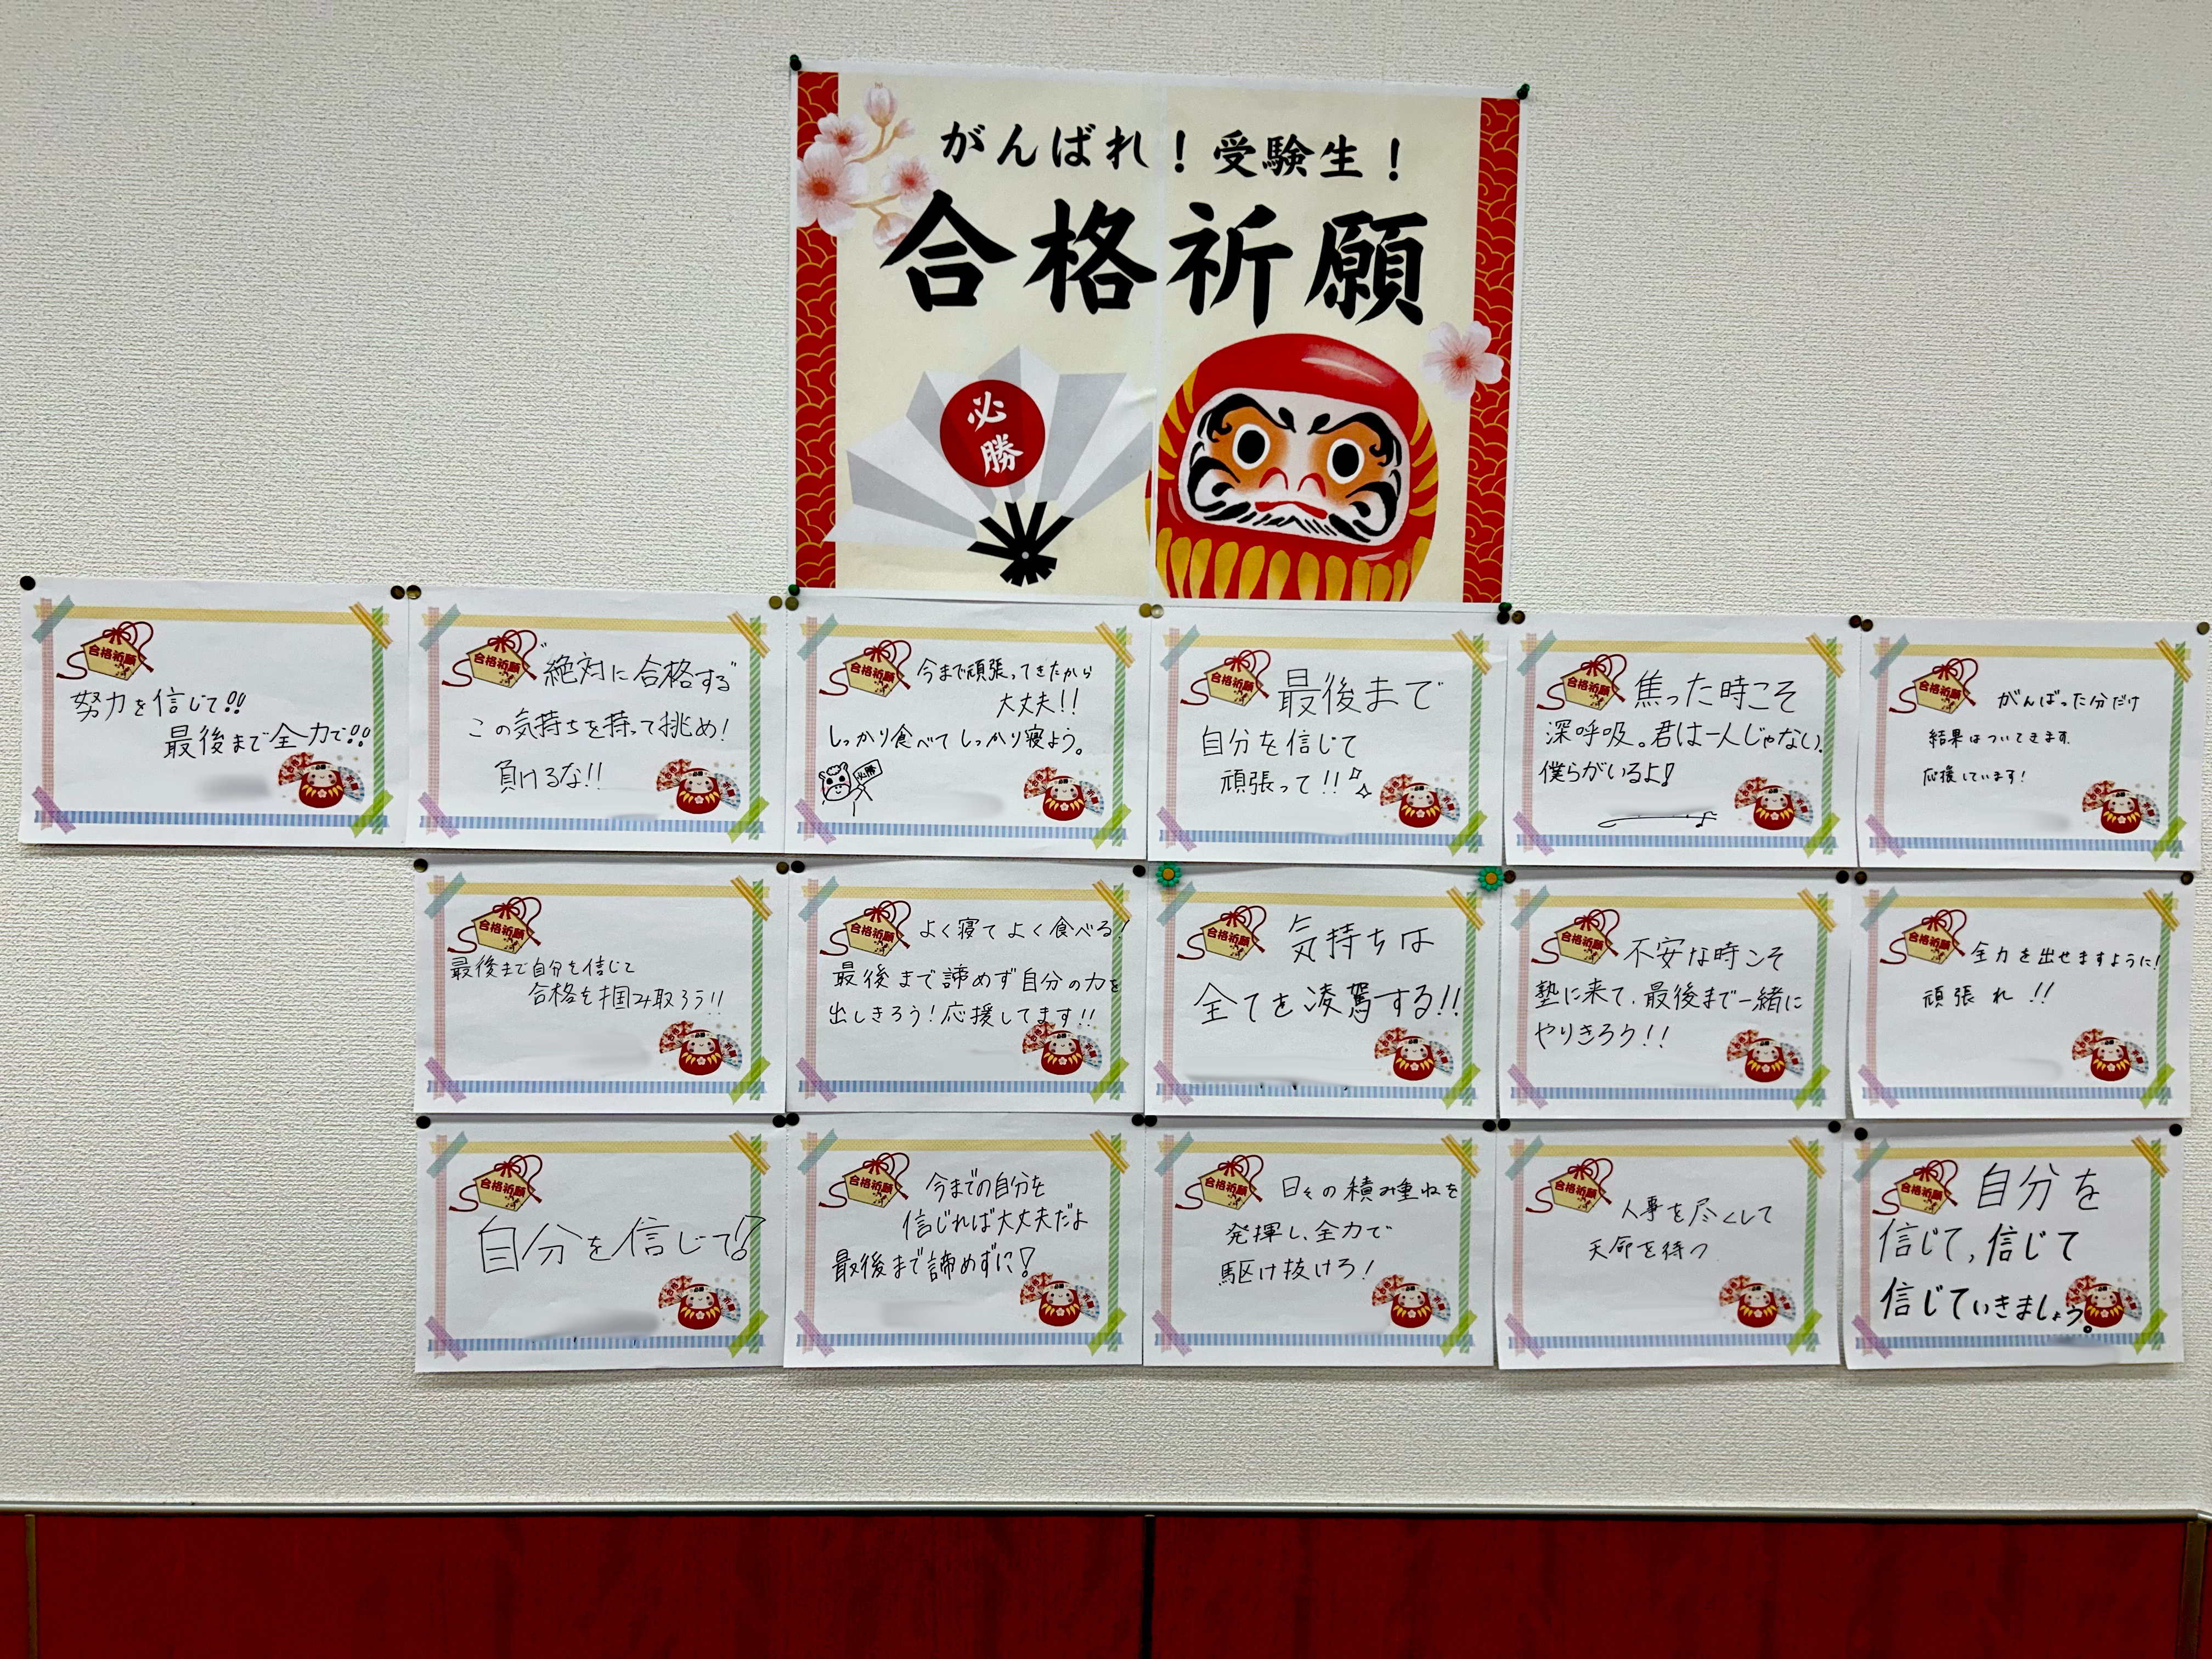 がんばれ！受験生！
合格祈願
必
勝
合格祈願
努力を信じて!!
最後まで全力で!!
合格祈願
"絶対に合格する"
この気持ちを持って挑め!
負けるな!!
合格祈願
今まで頑張ってきたから
大丈夫!!
しっかり食べてしっかり寝よう。
必勝
合格祈願
最後まで
自分を信じて
頑張って!!
合格祈願
焦った時こそ
深呼吸。君は一人じゃない。
僕らがいるよ!
合格祈願
がんばった分だけ
結果はついてきます。
応援しています!
合格祈願
最後まで自分を信じて
合格を掴み取ろう!!
合格祈願
よく寝てよく食べる!
最後まで諦めず自分の力を
出しきろう!応援してます!!
合格祈願
気持ちは
全てを凌駕する!!
合格祈願
不安な時こそ
塾に来て、最後まで一緒に
やりきろう!!
合格祈願
全力を出せますように!
頑張れ!!
合格祈願
自分を信じて!
合格祈願
今までの自分を
信じれば大丈夫だよ
最後まで諦めずに!
合格祈願
日々の積み重ねを
発揮し、全力で
駆け抜けろ!
合格祈願
人事を尽くして
天命を待つ
合格祈願
自分を
信じて、信じて
信じていきましょう。